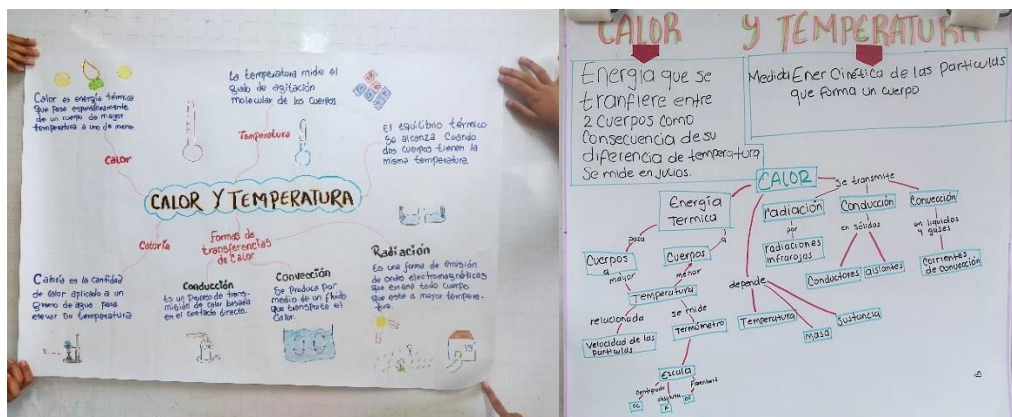 Calor es energía térmica
que pasa espontáneamente
de un cuerpo de mayor
temperatura a uno de menor
Calor
La temperatura mide el
grado de agitación
molecular de los cuerpos
Temperatura
El equilibrio térmico
Se alcanza cuando
dos cuerpos tienen la
misma temperatura
CALOR Y TEMPERATURA
Caloría
Formas de
transferencias
de Calor
Caloría es la cantidad
de calor aplicado a un
gramo de agua para
elevar su temperatura
Conducción
Es un Proceso de trans-
misión de calor basada
en el contacto directo.
Convección
Se produce por
medio de un fluido
que transporta el
Calor.
Radiación
Es una forma de emisión
de ondas electromagnéticas
que emana todo cuerpo
que este a mayor tempera-
tura.
CALOR Y TEMPERATURA
Energía que se
tranfiere entre
2 cuerpos como
Consecuencia de su
diferencia de temperatura
Se mide en julios.
Medida Ener Cinética de las Partículas
que forma un cuerpo
CALOR
Energía
Termica
pasa
a
Cuerpos
a
mayor
Cuerpos
menor
Temperatura
relacionada
se mide
Velocidad de las
Partículas
Termómetro
Escala
centígrado
absoluta
Farenheit
ºC
K
ºF
se transmite
radiación
por
radiaciones
infrarojas
Conducción
en sólidos
Conductores
aislantes
Convección
en líquidos
y gases
Corrientes
de convección
depende
Temperatura
masa
Sustancia